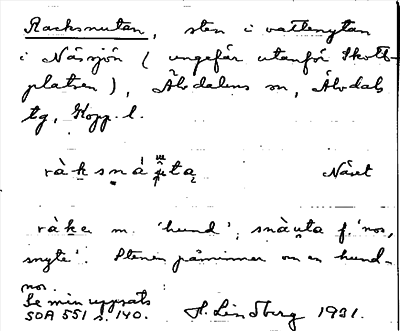 Racksnutan, sten i vattenytan
i Näsjön (ungefär utanför Skott-
platsen), Älvdalens sn, Älvdals
tg, Kopp. l.
ràksnáu̯ta Näset
ràke m. 'hund', snàu̯ta f. 'nos,
snyte'. Stenen påminner om en hund-
nos.
Se min uppsats
SOÄ 551 s. 140. H. Lindberg 1931.